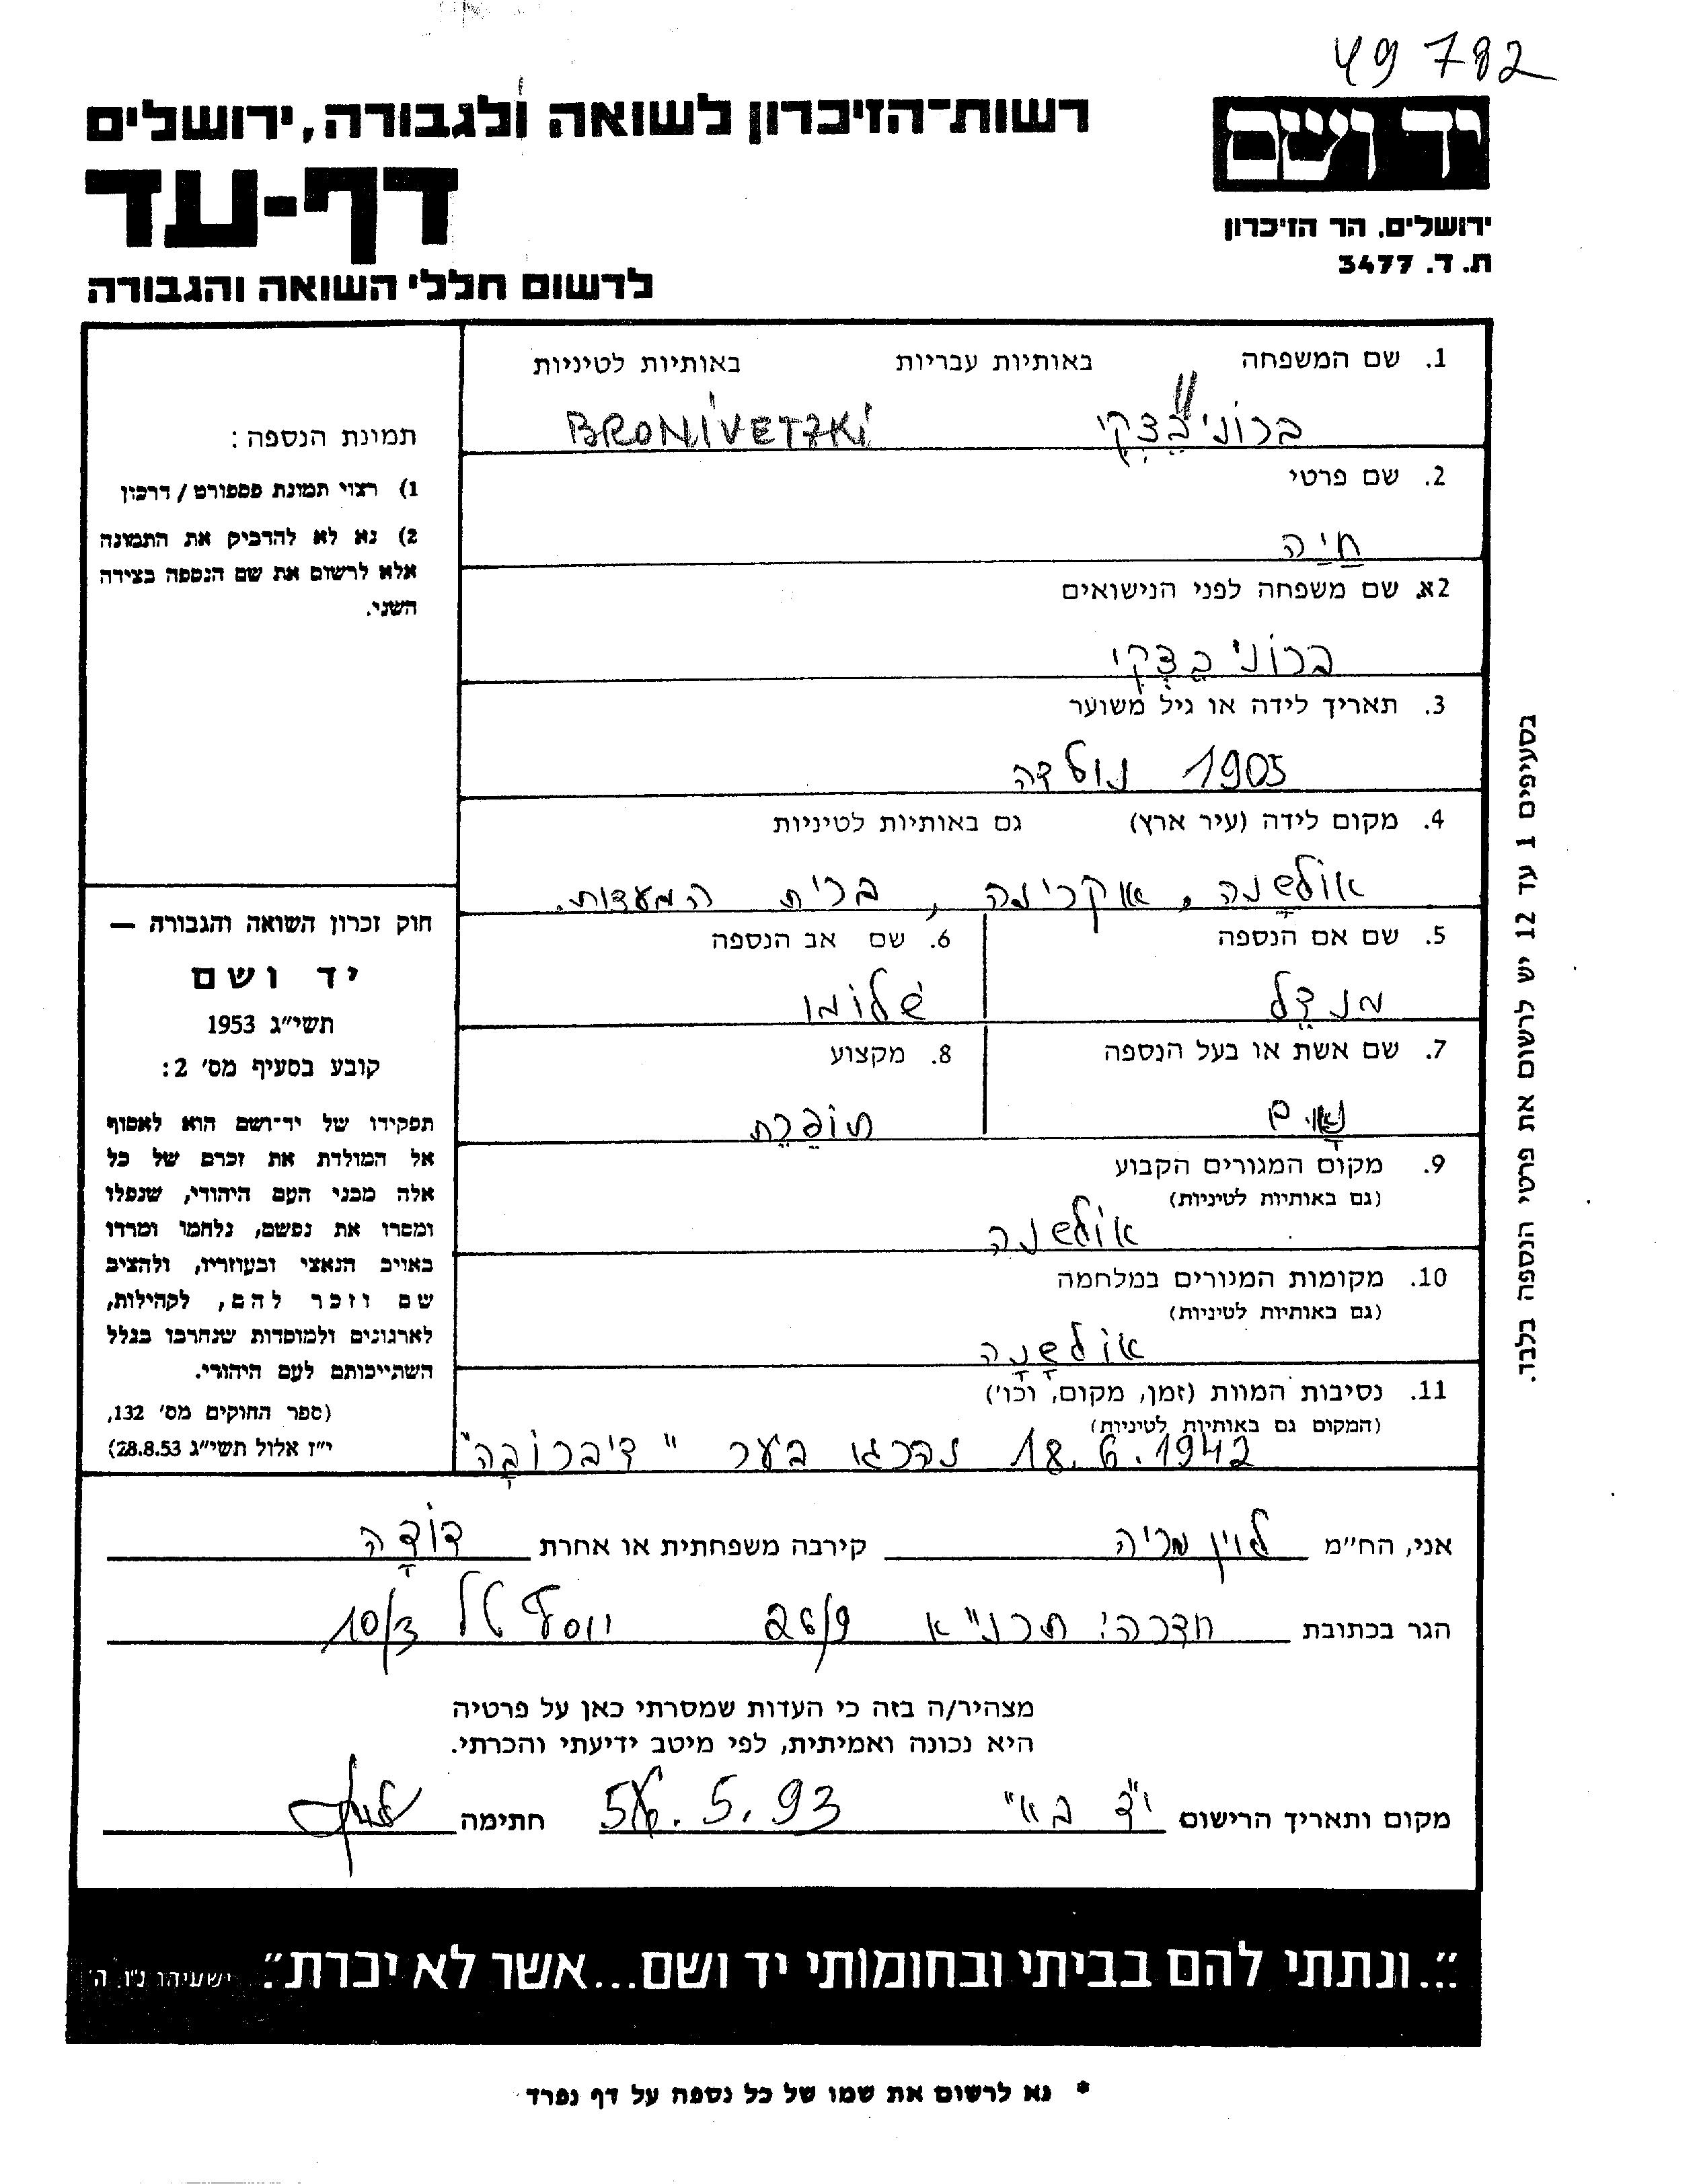 49782
רשות-הזיכרון לשואה ולגבורה, ירושלים
יד ושם
דף-עד
ירושלים. הר הזיכרון
ת. ד. 3477
לרשום חללי השואה והגבורה
1. שם המשפחה באותיות עבריות באותיות לטיניות
ברוניבצקי BRONIVETZKI
2. שם פרטי
חיה
2א. שם משפחה לפני הנישואים
ברוניבצקי
3. תאריך לידה או גיל משוער
1905 נולדה
4. מקום לידה (עיר ארץ) גם באותיות לטיניות
אולשנה, אוקרינה, ברית המעצות.
5. שם אם הנספה
מנדל
6. שם אב הנספה
שלומו
7. שם אשת או בעל הנספה
8. מקצוע
תופרת
9. מקום המגורים הקבוע
(גם באותיות לטיניות)
אולשנה
10. מקומות המגורים במלחמה
(גם באותיות לטיניות)
אולשנה
11. נסיבות המוות (זמן, מקום, וכו')
(המקום גם באותיות לטיניות)
18.6.1942 נהרגו בער "דיברובה"
תמונת הנספה:
1) רצוי תמונת פספורט / דרכון
2) נא לא להדביק את התמונה
אלא לרשום את שם הנספה בצידה
השני.
חוק זכרון השואה והגבורה —
יד ושם
תשי"ג 1953
קובע בסעיף מס' 2:
תפקידו של יד-ושם הוא לאסוף
אל המולדת את זכרם של כל
אלה מבני העם היהודי, שנפלו
ומסרו את נפשם, נלחמו ומרדו
באויב הנאצי ובעוזריו, ולהציב
שם וזכר להם, לקהילות,
לארגונים ולמוסדות שנחרבו בגלל
השתייכותם לעם היהודי.
(ספר החוקים מס' 132,
י"ז אלול תשי"ג 28.8.53)
בסעיפים 1 עד 12 יש לרשום את פרטי הנספה בלבד.
אני, הח"מ לוין מריה קירבה משפחתית או אחרת דודה
הגר בכתובת חדרה: תרנ"א 26/9 יוסף טל 10/3
מצהיר/ה בזה כי העדות שמסרתי כאן על פרטיה
היא נכונה ואמיתית, לפי מיטב ידיעתי והכרתי.
מקום ותאריך הרישום 5.93 חתימה
"...ונתתי להם בביתי ובחומותי יד ושם...אשר לא יכרת". ישעיהו נ"ו, ה'
* נא לרשום את שמו של כל נספה על דף נפרד